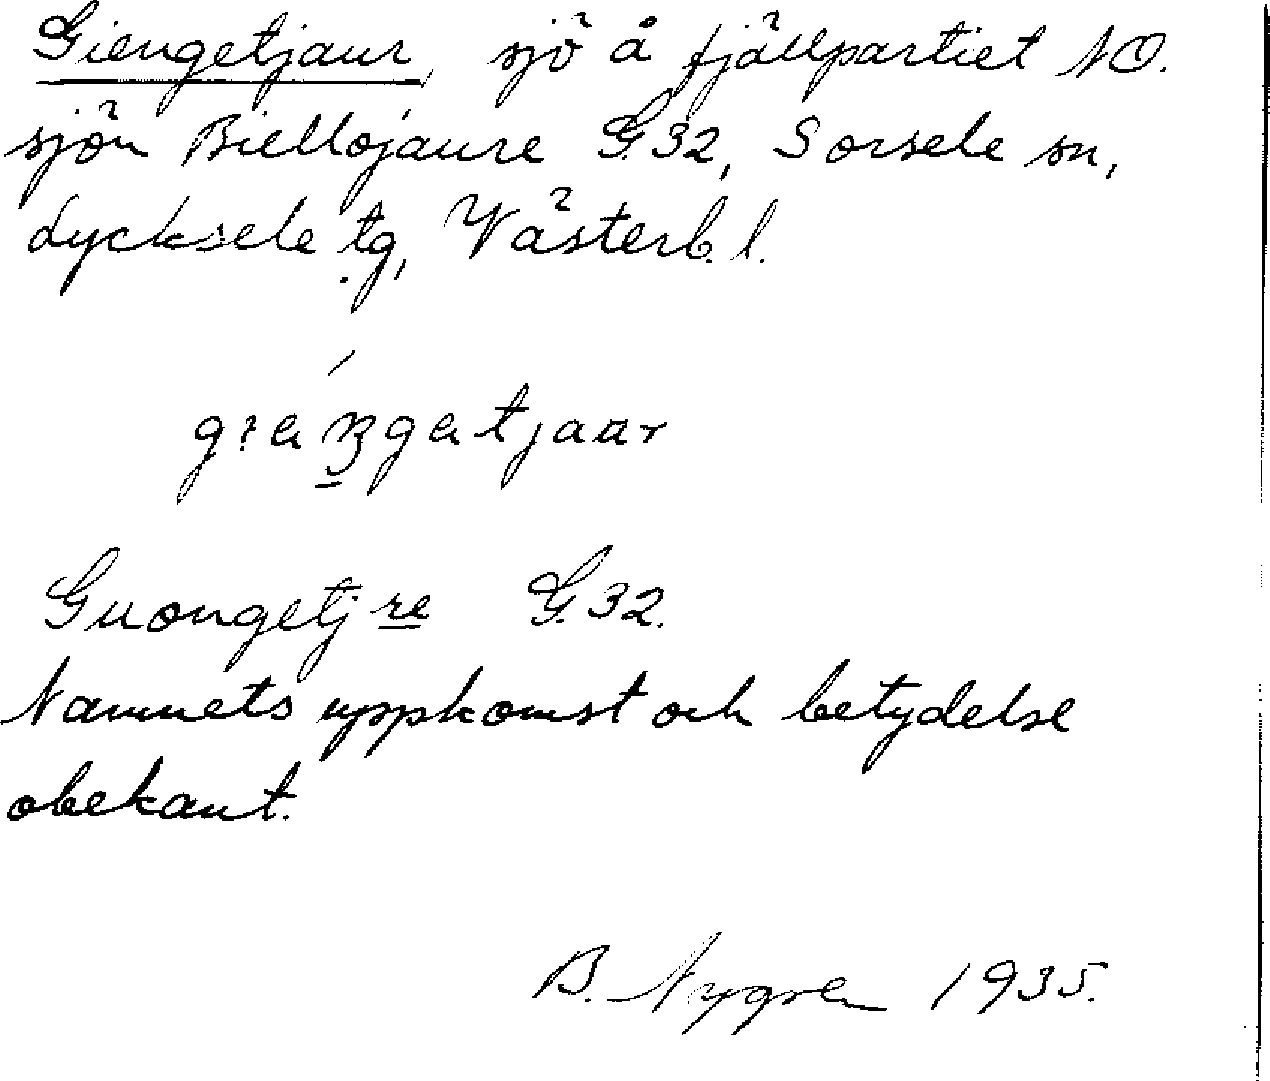 Giengetjaur, sjö å fjällpartiet NO.
sjön Biellojaure G.32, Sorsele sn,
Lycksele tg, Västerb. l.
Guongetjre G.32.
Namnets uppkomst och betydelse
obekant.
B. Nygren 1935.